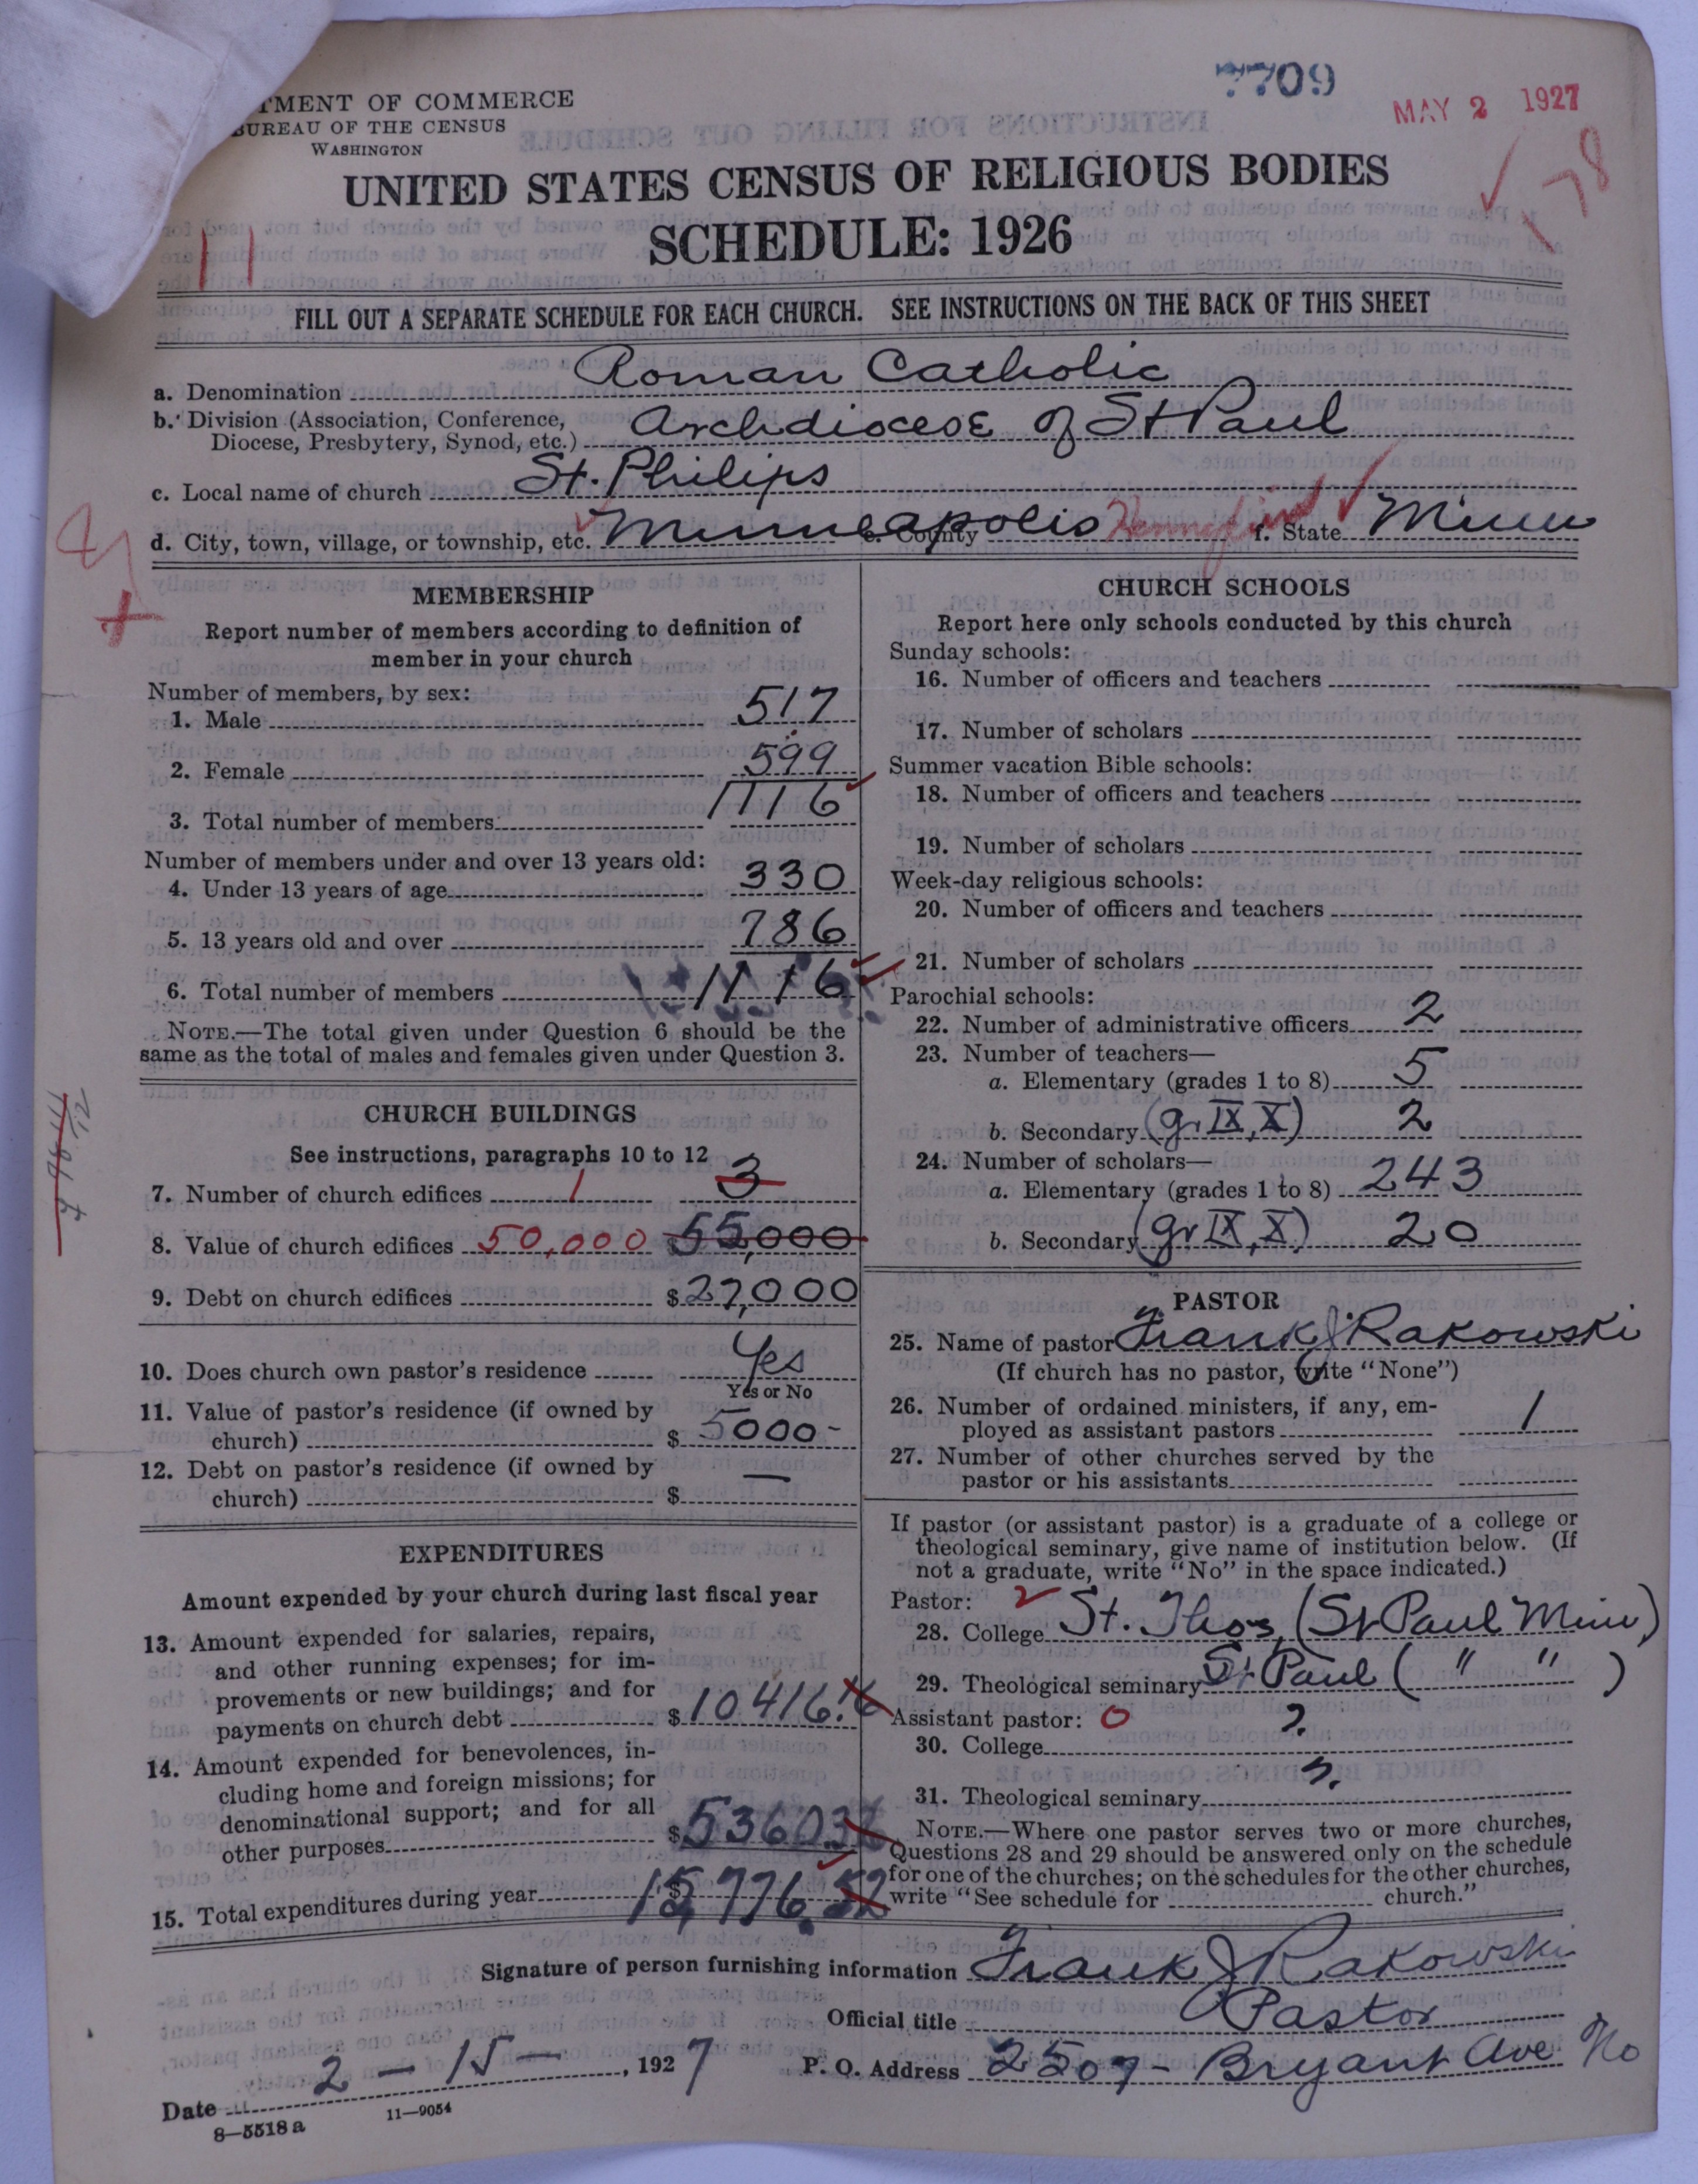 7709
MAY 2 1927
TMENT OF COMMERCE
BUREAU OF THE CENSUS
WASHINGTON
UNITED STATES CENSUS OF RELIGIOUS BODIES
SCHEDULE: 1926
11
178
FILL OUT A SEPARATE SCHEDULE FOR EACH CHURCH. SEE INSTRUCTIONS ON THE BACK OF THIS SHEET
a. Denomination Roman Catholic
b. Division (Association, Conference,
Diocese, Presbytery, Synod, etc.) Archdiocese of St Paul
c. Local name of church St. Philips
d. City, town, village, or township, etc. Minneapolis e. County f. State Minn
MEMBERSHIP
Report number of members according to definition of
member in your church
Number of members, by sex:
1. Male 517
2. Female 599
3. Total number of members 1116
Number of members under and over 13 years old:
4. Under 13 years of age 330
5. 13 years old and over 786
6. Total number of members 1116
NOTE.—The total given under Question 6 should be the
same as the total of males and females given under Question 3.
CHURCH BUILDINGS
See instructions, paragraphs 10 to 12
7. Number of church edifices 1 3
8. Value of church edifices 50,000 $55,000
9. Debt on church edifices $27,000
10. Does church own pastor's residence Yes
Yes or No
11. Value of pastor's residence (if owned by
church) $5000-
12. Debt on pastor's residence (if owned by
church) $ —
EXPENDITURES
Amount expended by your church during last fiscal year
13. Amount expended for salaries, repairs,
and other running expenses; for im-
provements or new buildings; and for
payments on church debt $10416.16
14. Amount expended for benevolences, in-
cluding home and foreign missions; for
denominational support; and for all
other purposes $5360.36
15. Total expenditures during year $15,776.52
CHURCH SCHOOLS
Report here only schools conducted by this church
Sunday schools:
16. Number of officers and teachers
17. Number of scholars
Summer vacation Bible schools:
18. Number of officers and teachers
19. Number of scholars
Week-day religious schools:
20. Number of officers and teachers
21. Number of scholars
Parochial schools:
22. Number of administrative officers 2
23. Number of teachers—
a. Elementary (grades 1 to 8) 5
b. Secondary (gr IX, X) 2
24. Number of scholars—
a. Elementary (grades 1 to 8) 243
b. Secondary (gr IX, X) 20
PASTOR
25. Name of pastor Frank J Rakowski
(If church has no pastor, write "None")
26. Number of ordained ministers, if any, em-
ployed as assistant pastors 1
27. Number of other churches served by the
pastor or his assistants
If pastor (or assistant pastor) is a graduate of a college or
theological seminary, give name of institution below. (If
not a graduate, write "No" in the space indicated.)
Pastor:
28. College St. Thos, (St Paul Minn)
29. Theological seminary St Paul ( " " )
Assistant pastor: 0
30. College ?
31. Theological seminary ?
NOTE.—Where one pastor serves two or more churches,
Questions 28 and 29 should be answered only on the schedule
for one of the churches; on the schedules for the other churches,
write "See schedule for church."
Signature of person furnishing information Frank J Rakowski
Official title Pastor
Date 2 - 15 - , 1927 P. O. Address 2507 - Bryant Ave No
8—5518 a 11—9054